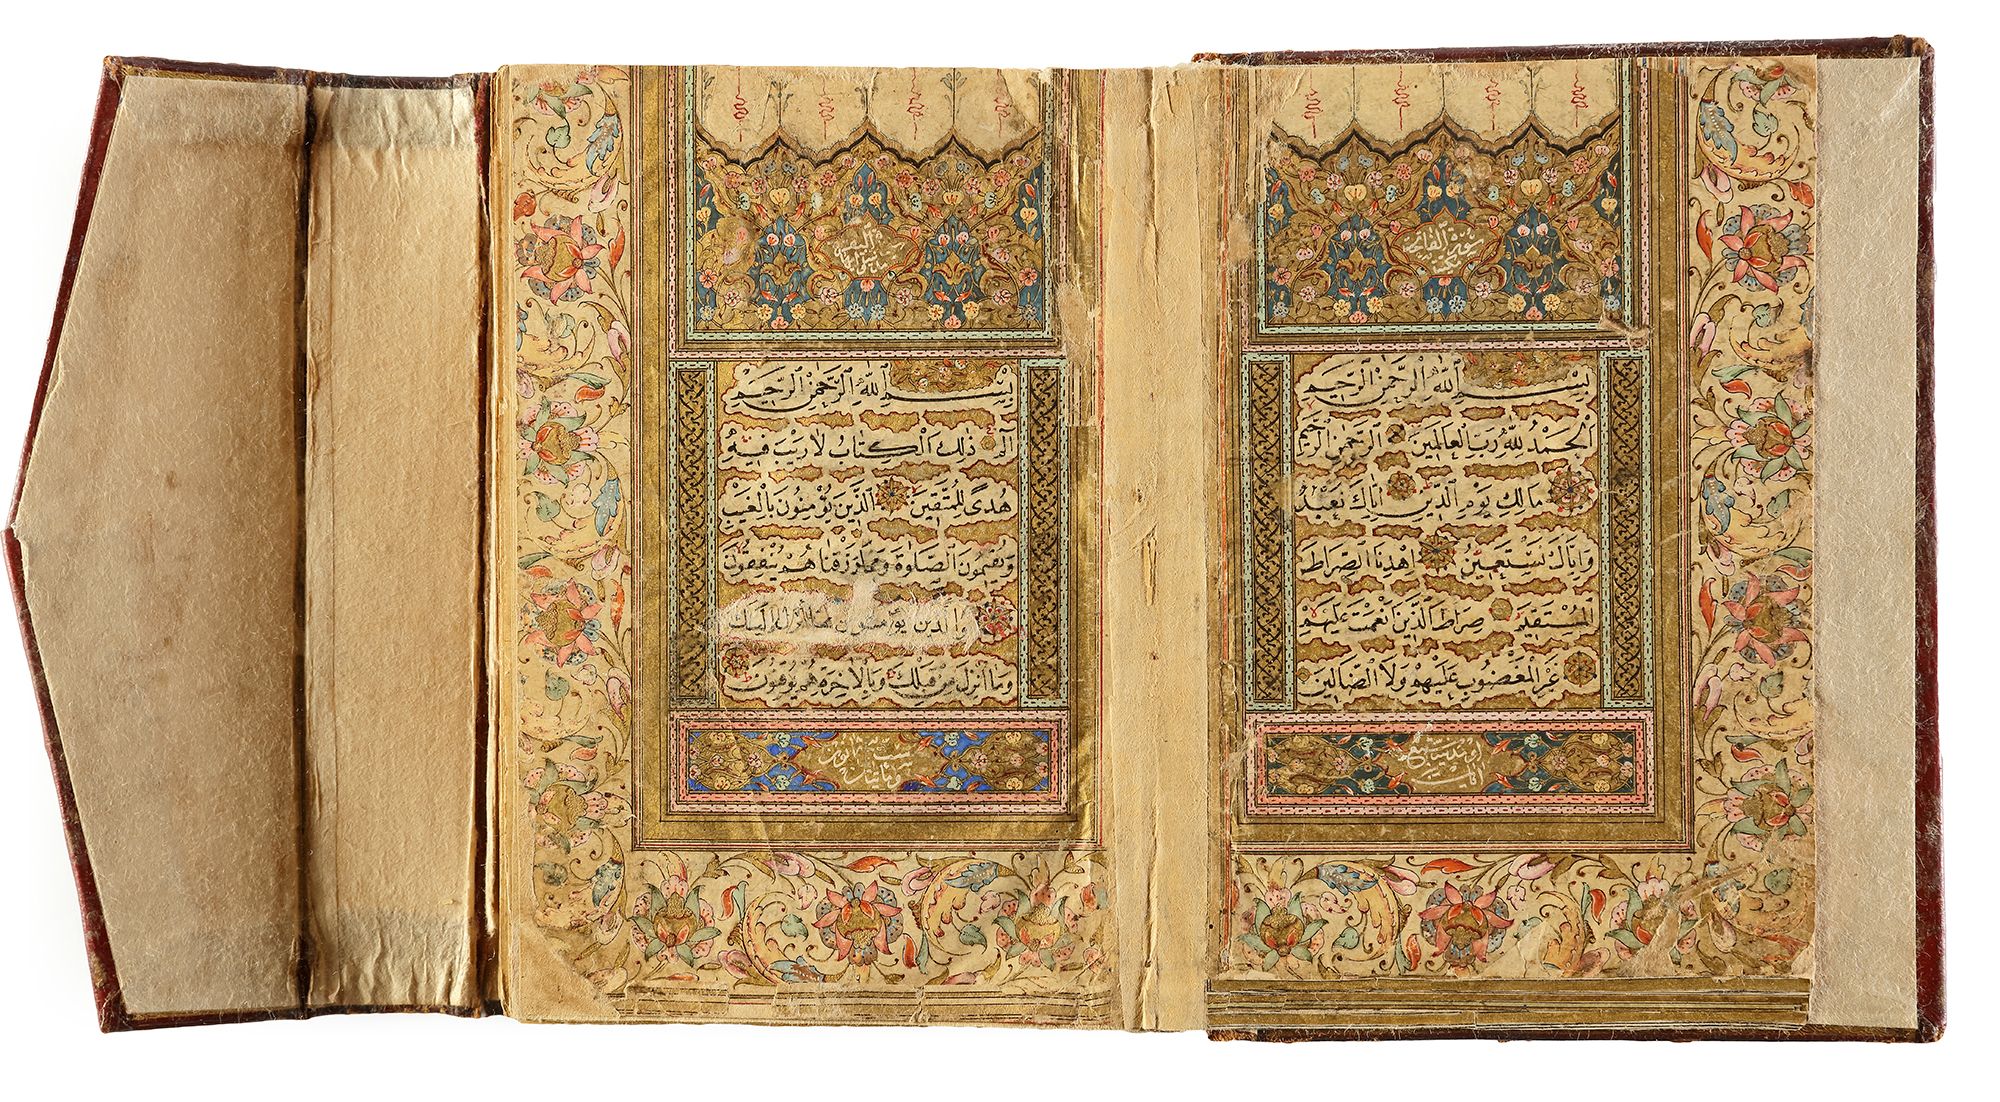 سورة الفاتحة
مكية
بسم الله الرحمن الرحيم
الحمد لله رب العالمين الرحمن الرحيم
مالك يوم الدين اياك نعبد
واياك نستعين اهدنا الصراط
المستقيم صراط الذين انعمت عليهم
غير المغضوب عليهم ولا الضالين
سورة البقرة
بسم الله الرحمن الرحيم
الم ذلك الكتاب لا ريب فيه
هدى للمتقين الذين يؤمنون بالغيب
ويقيمون الصلوة ومما رزقناهم ينفقون
والذين يؤمنون بما أنزل اليك
وما انزل من قبلك وبالاخرة هم يوقنون